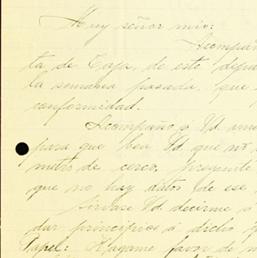 Muy señor mio:
Acompañ
ta de Caja, de este depar
la semana pasada, que
conformidad.
Acompaño a Vd
para que vea Vd que no
metro de cerco,
que no hay datos de ese
Sirvase Vd decirme
dar principios a dichos
Papel: Hagame favor de m